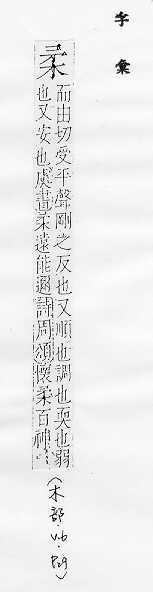 字彙
而由切受平聲剛之反也又順也調也耎也弱
也又安也虞書柔遠能邇詩周頌懷柔百神
(木部